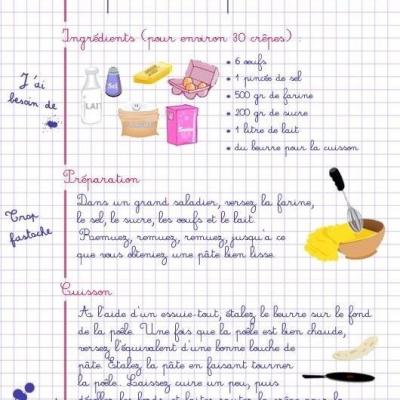 Ingrédients (pour environ 30 crêpes) :
J'ai
besoin de
LAIT
Sel
• 6 œufs
• 1 pincée de sel
• 500 gr de farine
• 200 gr de sucre
• 1 litre de lait
• du beurre pour la cuisson
Préparation
Trop
fastoche
Dans un grand saladier, versez la farine,
le sel, le sucre, les œufs et le lait.
Remuez, remuez, remuez, jusqu'a ce
que vous obteniez une pâte bien lisse.
Cuisson
A l'aide d'un essuie-tout, étalez le beurre sur le fond
de la poêle. Une fois que la poêle est bien chaude,
versez l'équivalent d'une bonne louche de
pâte. Etalez la pâte en faisant tourner
la poêle. Laissez cuire un peu, puis